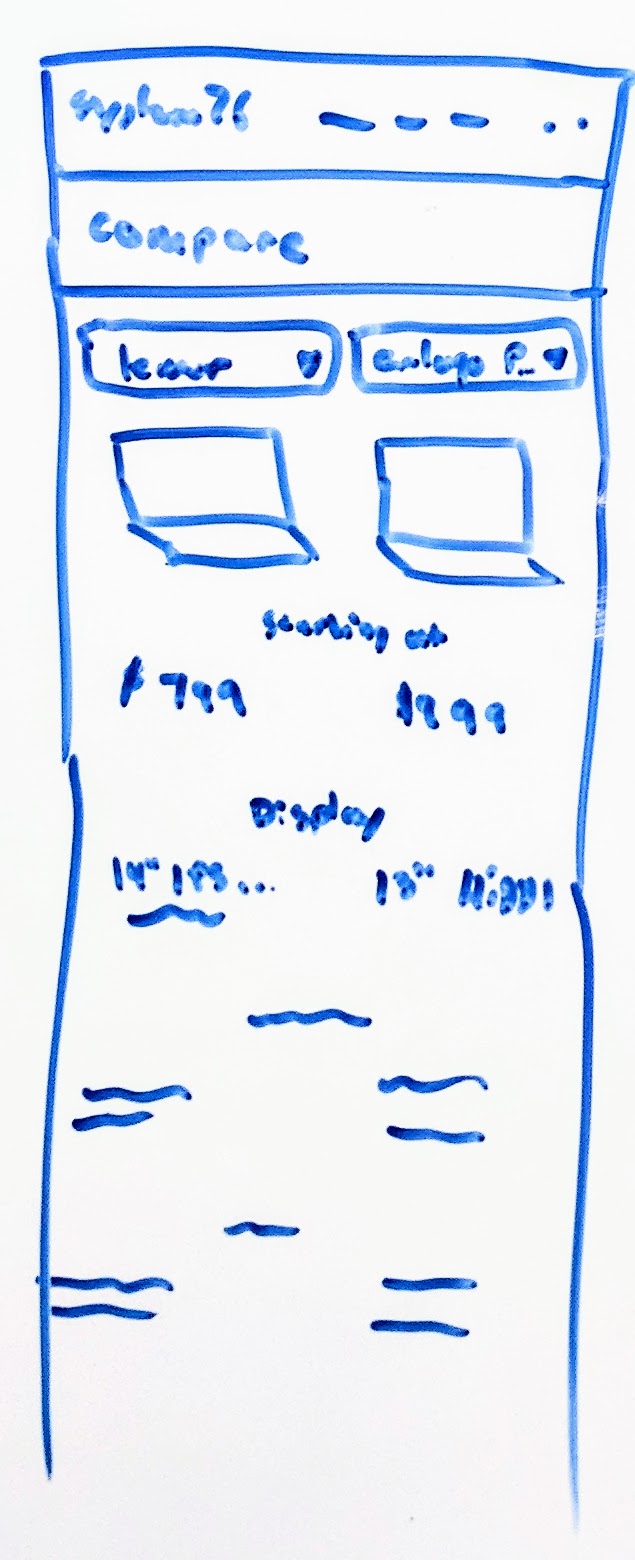 system76
compare
lemur
galago P...
starting at
$799
$999
Display
14" IPS...
13" HiDPI